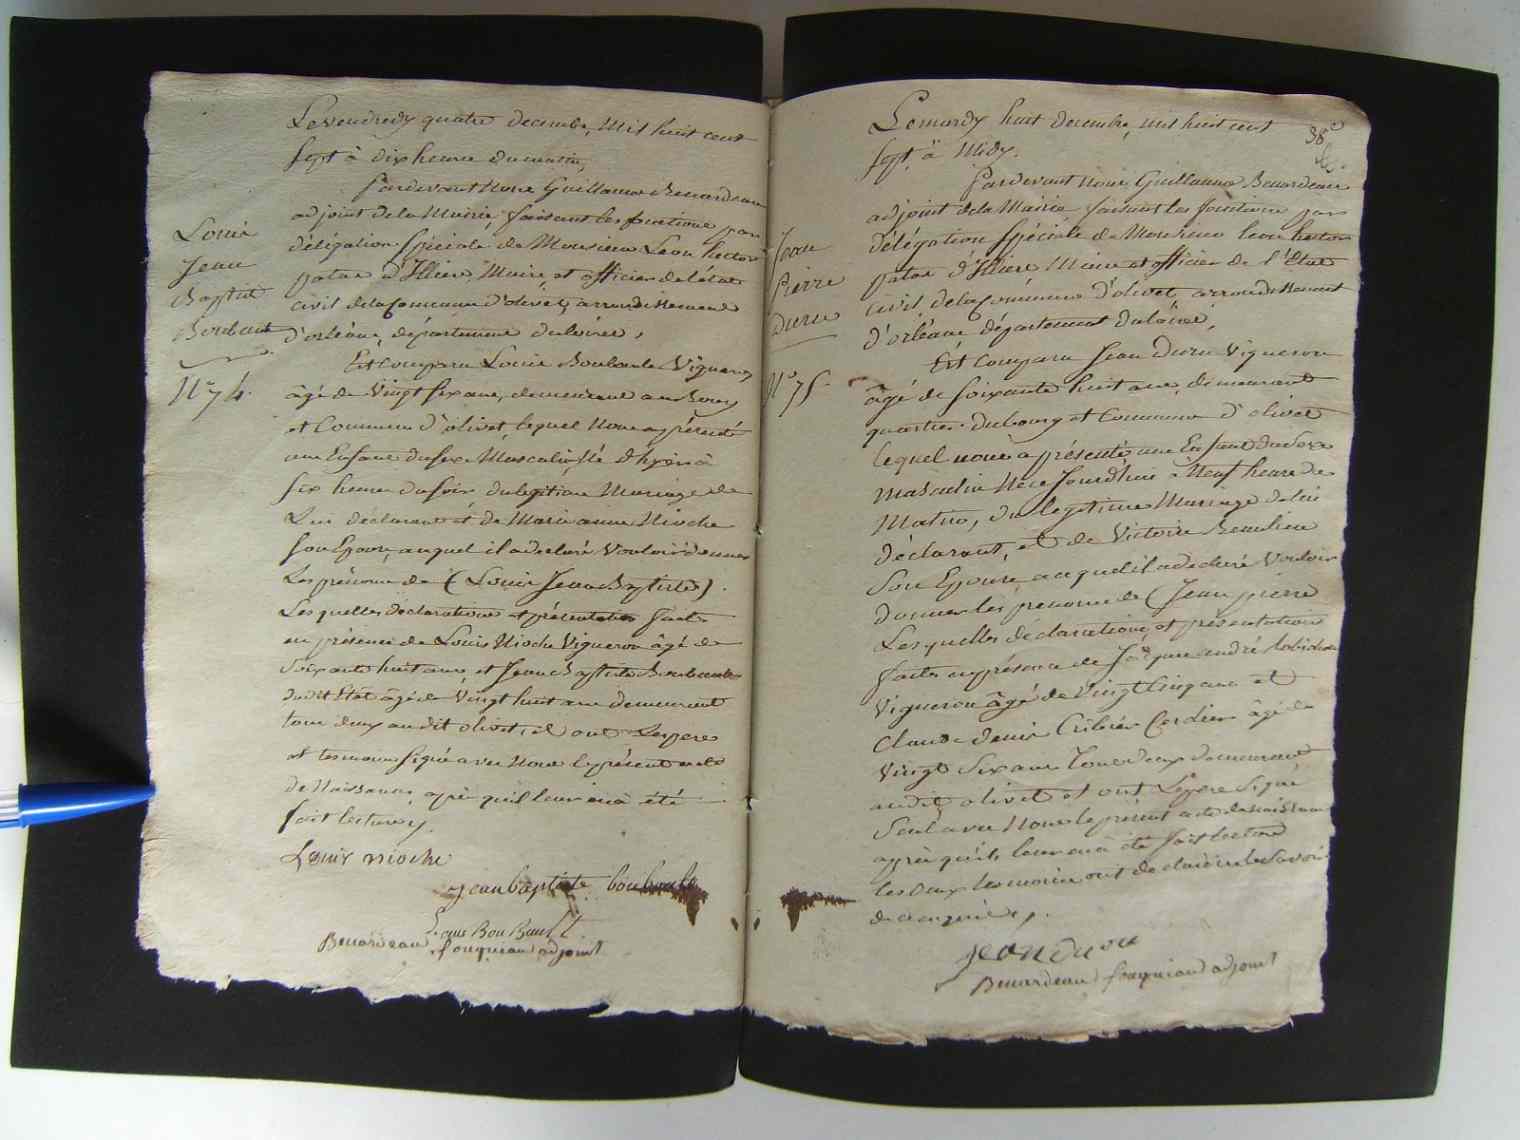 Louis
Jean
Baptiste
Boubault
N° 74.
Le vendredy quatre decembre, mil huit cent
sept à dix heures du matin,
Pardevant Nous Guillaume Benardeau
adjoint de la Mairie, faisant les fonctions par
délégation spéciale de Monsieur Leon hector
patas d'Illiers, Maire et officier de l'état
civil de la Commune d'olivet, arrondissement
d'orléans, département du loiret,
Est Comparu Louis Boubault Vigneron
âgé de Vingt six ans, demeurant au Bourg
et Commune d'olivet, lequel Nous a présenté
un Enfant du sexe Masculin, Né d'hyer à
six heures du soir du legitime Mariage de
Lui déclarant et de Marie anne Nioche
son Epouse, auquel il a declaré Vouloir donner
Les prénoms de (Louis Jean Baptiste).
Les quelles déclarations et présentation faites
en présence de Louis Nioche Vigneron âgé de
soixante huit ans, et Jean Baptiste Boubault
dudit Etat âgé de Vingt huit ans demeurant
tous deux audit olivet, et ont Les pere
et temoins signé avec Nous le présent acte
de Naissance, après qu'il leur en a été
fait lecture.
Louis nioche
jean baptiste boubault
Louis Bou Bault
Benardeau fouqueau adjoint
38e
Jean
Pierre
Duru
N° 75.
Le mardy huit decembre, mil huit cent
sept à Midy.
Pardevant Nous, Guillaume Benardeau
adjoint de la Mairie faisant les fonctions par
délégation spéciale de Monsieur leon hector
patas d'Illiers Maire et officier de l'Etat
civil, de la Commune d'olivet, arrondissement
d'orléans département du loiret,
Est Comparu Jean Duru Vigneron
âgé de soixante huit ans, demeurant
quartier du bourg et Commune d'olivet
lequel nous a présenté un Enfant du sexe
masculin Né ce Jourd'hui à Neuf heures du
Matin, du legitime Mariage de lui
déclarant, et de Victoire Beaulieu
son Epouse auquel il a declaré Vouloir
donner les prenoms de (Jean pierre
Lesquelles déclarations, et présentation
faites en présence de Jacques andré
Vigneron âgé de Vingt Cinq ans et
Claude denis Cribier Cordier âgé de
Vingt Six ans Tous deux demeurant
audit olivet et ont Le pere Signé
seul avec Nous le présent acte de naissance
après qu'il leur en a été fait lecture
les deux temoins ont declaré ne le savoir
de ce enquis.
jean duru
Benardeau fouqueau adjoint